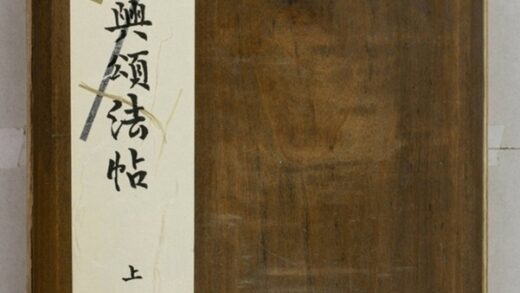 興頌法帖
上